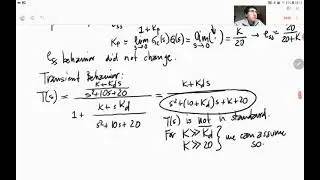 1 + Kp
Kp = lim Gc(s)G(s) = lim (.) = K/20 → ess = 20/20+K
s→0 s→0
ess behavior did not change.
Transient behavior:
T(s) = (K+Kds / s²+10s+20) / (1 + K+sKd / s²+10s+20) = K+Kds / s²+(10+Kd)s+K+20
T(s) is not in standard.
For K≫Kd } we can assume
K≫20 } so